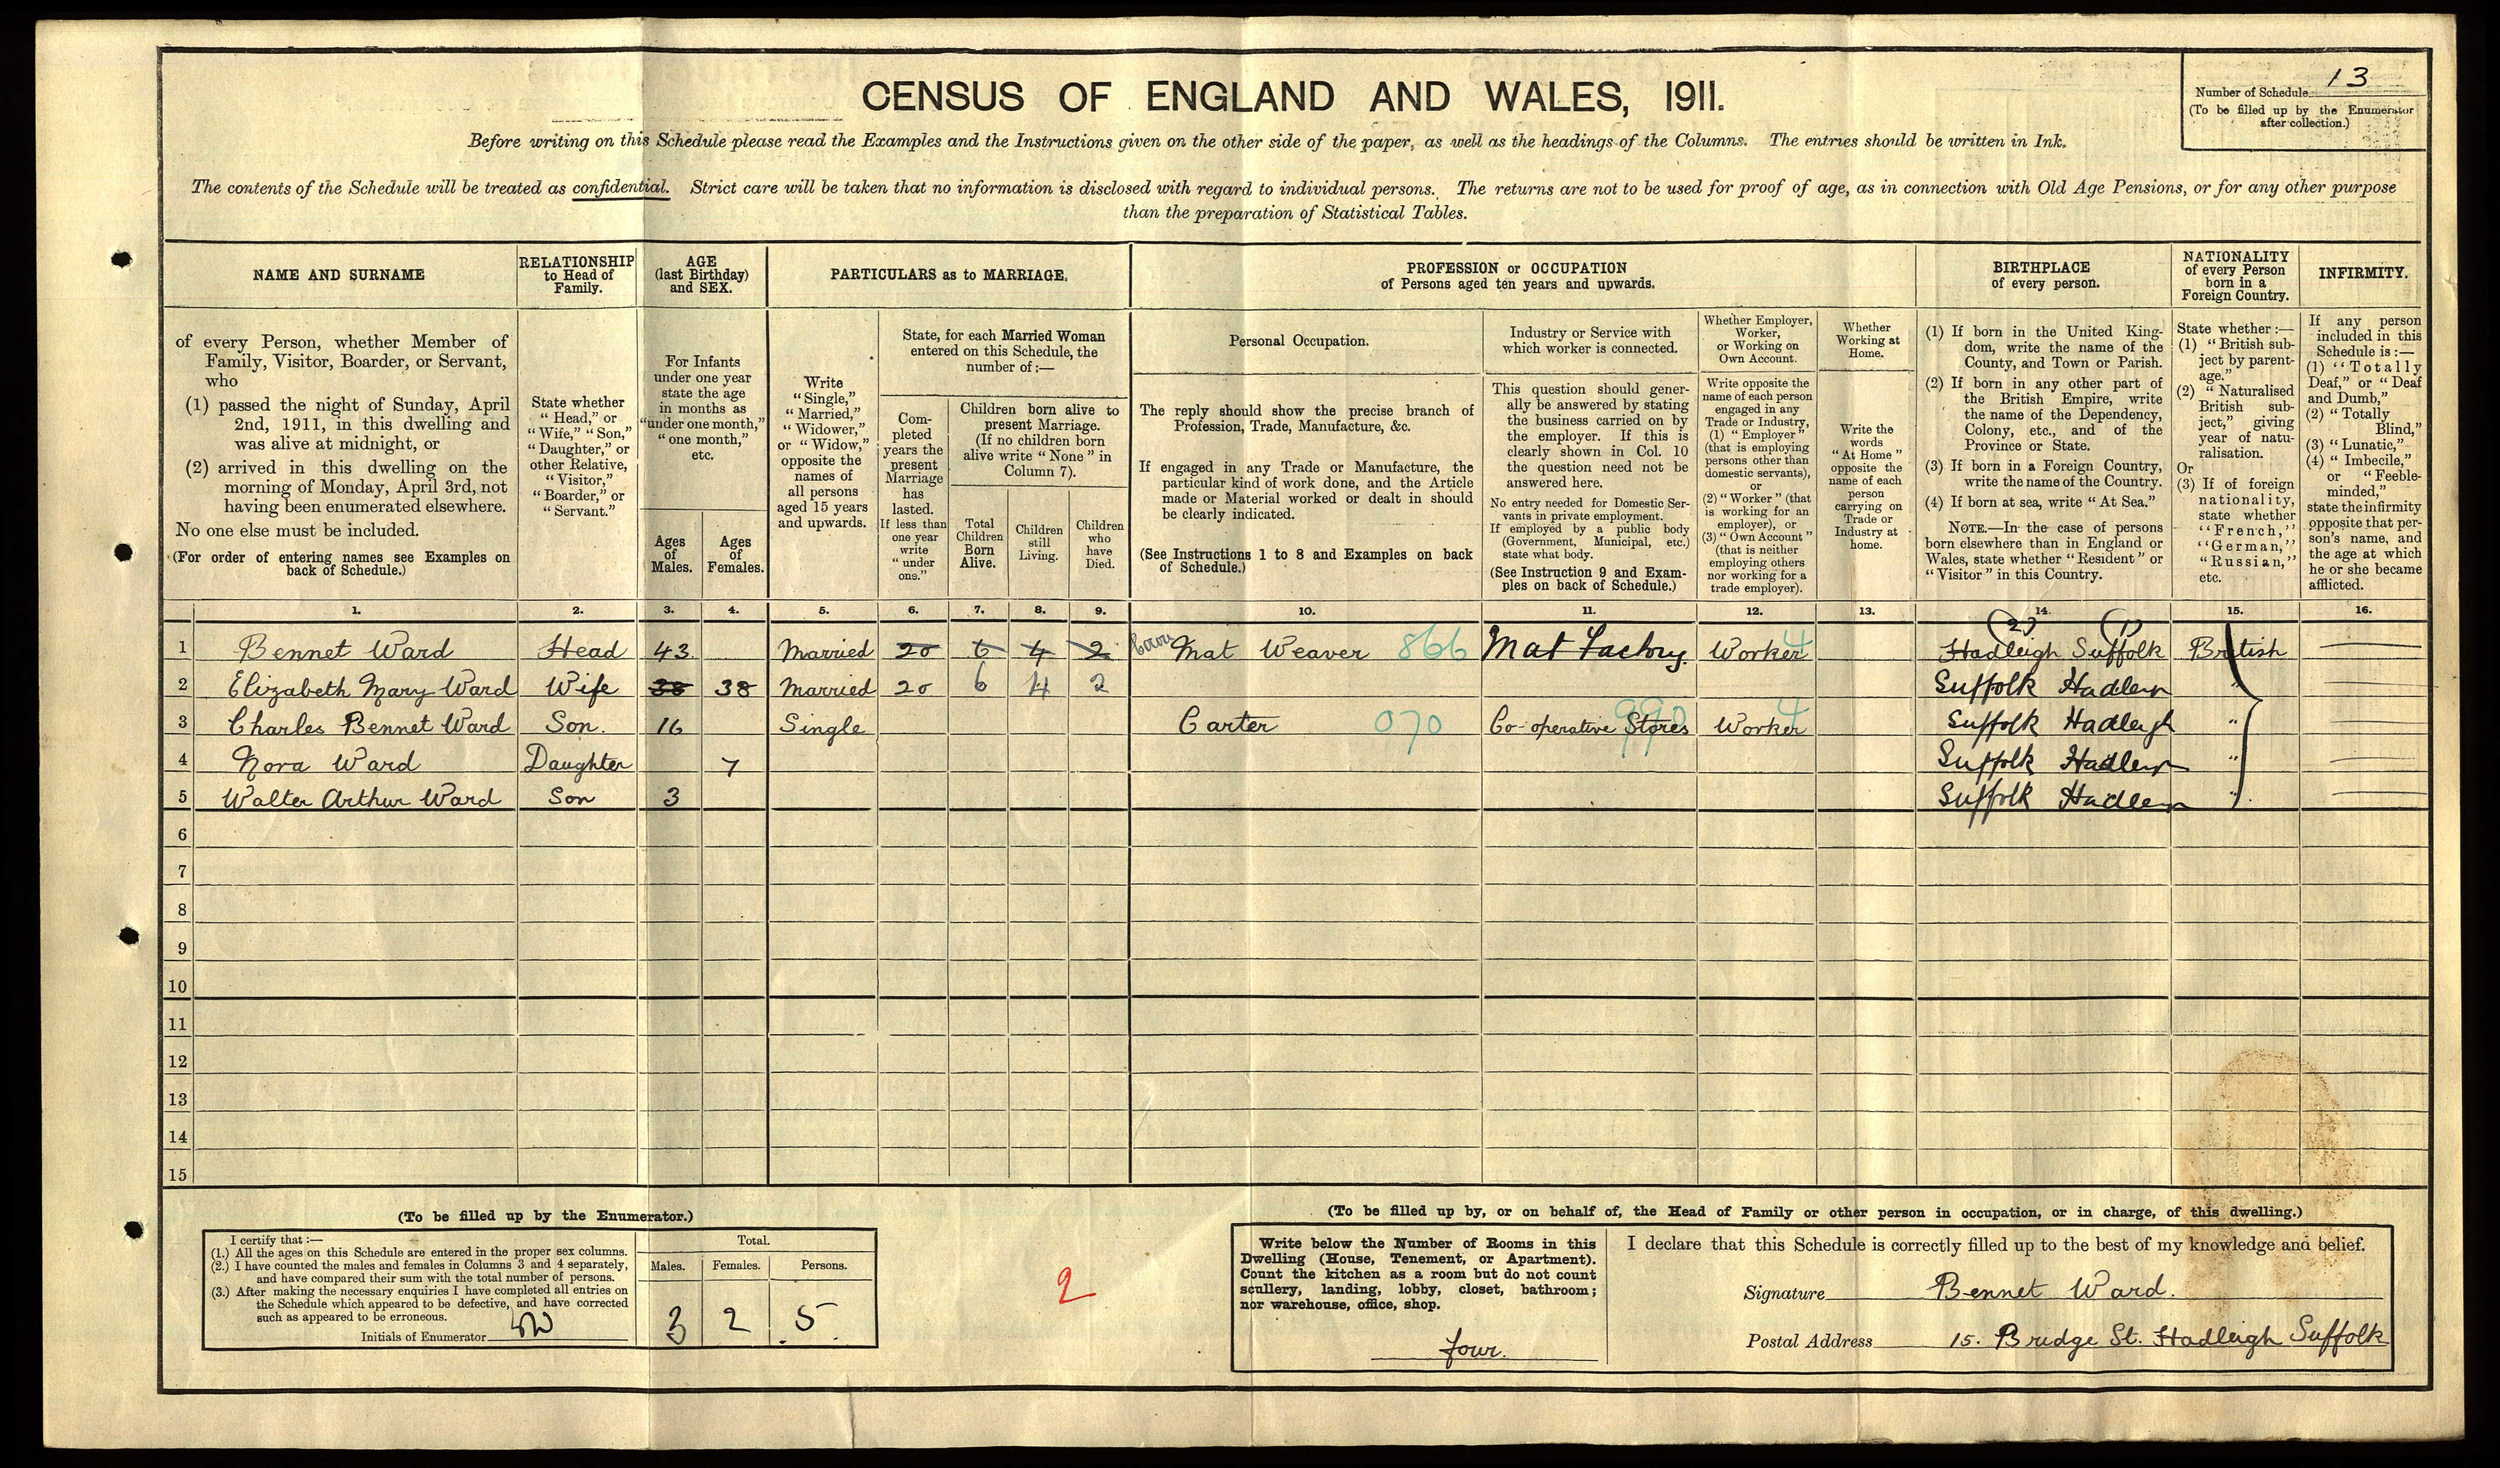 CENSUS OF ENGLAND AND WALES, 1911.
Number of Schedule 13
(To be filled up by the Enumerator
after collection.)
Before writing on this Schedule please read the Examples and the Instructions given on the other side of the paper, as well as the headings of the Columns. The entries should be written in Ink.
The contents of the Schedule will be treated as confidential. Strict care will be taken that no information is disclosed with regard to individual persons. The returns are not to be used for proof of age, as in connection with Old Age Pensions, or for any other purpose
than the preparation of Statistical Tables.
NAME AND SURNAME
of every Person, whether Member of
Family, Visitor, Boarder, or Servant,
who
(1) passed the night of Sunday, April
2nd, 1911, in this dwelling and
was alive at midnight, or
(2) arrived in this dwelling on the
morning of Monday, April 3rd, not
having been enumerated elsewhere.
No one else must be included.
(For order of entering names see Examples on
back of Schedule.)
RELATIONSHIP
to Head of
Family.
State whether
"Head," or
"Wife," "Son,"
"Daughter," or
other Relative,
"Visitor,"
"Boarder," or
"Servant."
AGE
(last Birthday)
and SEX.
For Infants
under one year
state the age
in months as
"under one month,"
"one month,"
etc.
Ages
of
Males.
Ages
of
Females.
PARTICULARS as to MARRIAGE.
Write
"Single,"
"Married,"
"Widower,"
or "Widow,"
opposite the
names of
all persons
aged 15 years
and upwards.
State, for each Married Woman
entered on this Schedule, the
number of:—
Com-
pleted
years the
present
Marriage
has
lasted.
If less than
one year
write
"under
one."
Children born alive to
present Marriage.
(If no children born
alive write "None" in
Column 7).
Total
Children
Born
Alive.
Children
still
Living.
Children
who
have
Died.
PROFESSION or OCCUPATION
of Persons aged ten years and upwards.
Personal Occupation.
The reply should show the precise branch of
Profession, Trade, Manufacture, &c.
If engaged in any Trade or Manufacture, the
particular kind of work done, and the Article
made or Material worked or dealt in should
be clearly indicated.
(See Instructions 1 to 8 and Examples on back
of Schedule.)
Industry or Service with
which worker is connected.
This question should gener-
ally be answered by stating
the business carried on by
the employer. If this is
clearly shown in Col. 10
the question need not be
answered here.
No entry needed for Domestic Ser-
vants in private employment.
If employed by a public body
(Government, Municipal, etc.)
state what body.
(See Instruction 9 and Exam-
ples on back of Schedule.)
Whether Employer,
Worker,
or Working on
Own Account.
Write opposite the
name of each person
engaged in any
Trade or Industry,
(1) "Employer"
(that is employing
persons other than
domestic servants),
or
(2) "Worker" (that
is working for an
employer), or
(3) "Own Account"
(that is neither
employing others
nor working for a
trade employer).
Whether
Working at
Home.
Write the
words
"At Home"
opposite the
name of each
person
carrying on
Trade or
Industry at
home.
BIRTHPLACE
of every person.
(1) If born in the United King-
dom, write the name of the
County, and Town or Parish.
(2) If born in any other part of
the British Empire, write
the name of the Dependency,
Colony, etc., and of the
Province or State.
(3) If born in a Foreign Country,
write the name of the Country.
(4) If born at sea, write "At Sea."
NOTE.—In the case of persons
born elsewhere than in England or
Wales, state whether "Resident" or
"Visitor" in this Country.
NATIONALITY
of every Person
born in a
Foreign Country.
State whether:—
(1) "British sub-
ject by parent-
age."
(2) "Naturalised
British sub-
ject," giving
year of natu-
ralisation.
Or
(3) If of foreign
nationality,
state whether
"French,"
"German,"
"Russian,"
etc.
INFIRMITY.
If any person
included in this
Schedule is:—
(1) "Totally
Deaf," or "Deaf
and Dumb,"
(2) "Totally
Blind,"
(3) "Lunatic,"
(4) "Imbecile,"
or "Feeble-
minded,"
state the infirmity
opposite that per-
son's name, and
the age at which
he or she became
afflicted.
1. 2. 3. 4. 5. 6. 7. 8. 9. 10. 11. 12. 13. 14. 15. 16.
(2) (1)
1 Bennet Ward Head 43 Married 20 6 4 2 Mat Weaver 866 Mat Factory. Worker 4 Hadleigh Suffolk British
2 Elizabeth Mary Ward Wife 38 38 Married 20 6 4 2 Suffolk Hadleigh "
3 Charles Bennet Ward Son. 16 Single Carter 070 Co-operative Stores 990 Worker 4 Suffolk Hadleigh "
4 Nora Ward Daughter 7 Suffolk Hadleigh "
5 Walter Arthur Ward Son 3 Suffolk Hadleigh "
6
7
8
9
10
11
12
13
14
15
(To be filled up by the Enumerator.)
I certify that:—
(1.) All the ages on this Schedule are entered in the proper sex columns.
(2.) I have counted the males and females in Columns 3 and 4 separately,
and have compared their sum with the total number of persons.
(3.) After making the necessary enquiries I have completed all entries on
the Schedule which appeared to be defective, and have corrected
such as appeared to be erroneous.
Initials of Enumerator
Total.
Males. Females. Persons.
3 2 5
2
(To be filled up by, or on behalf of, the Head of Family or other person in occupation, or in charge, of this dwelling.)
Write below the Number of Rooms in this
Dwelling (House, Tenement, or Apartment).
Count the kitchen as a room but do not count
scullery, landing, lobby, closet, bathroom;
nor warehouse, office, shop.
four.
I declare that this Schedule is correctly filled up to the best of my knowledge and belief.
Signature Bennet Ward.
Postal Address 15. Bridge St. Hadleigh Suffolk